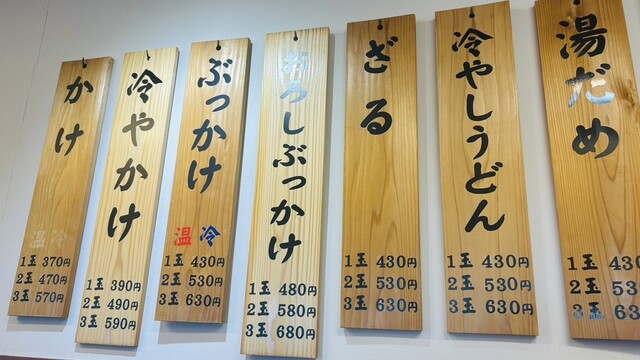 かけ
温 冷
1玉 370円
2玉 470円
3玉 570円
冷やかけ
1玉 390円
2玉 490円
3玉 590円
ぶっかけ
温 冷
1玉 430円
2玉 530円
3玉 630円
おろしぶっかけ
1玉 480円
2玉 580円
3玉 680円
ざる
1玉 430円
2玉 530円
3玉 630円
冷やしうどん
1玉 430円
2玉 530円
3玉 630円
湯だめ
1玉 430
2玉 53
3玉 63